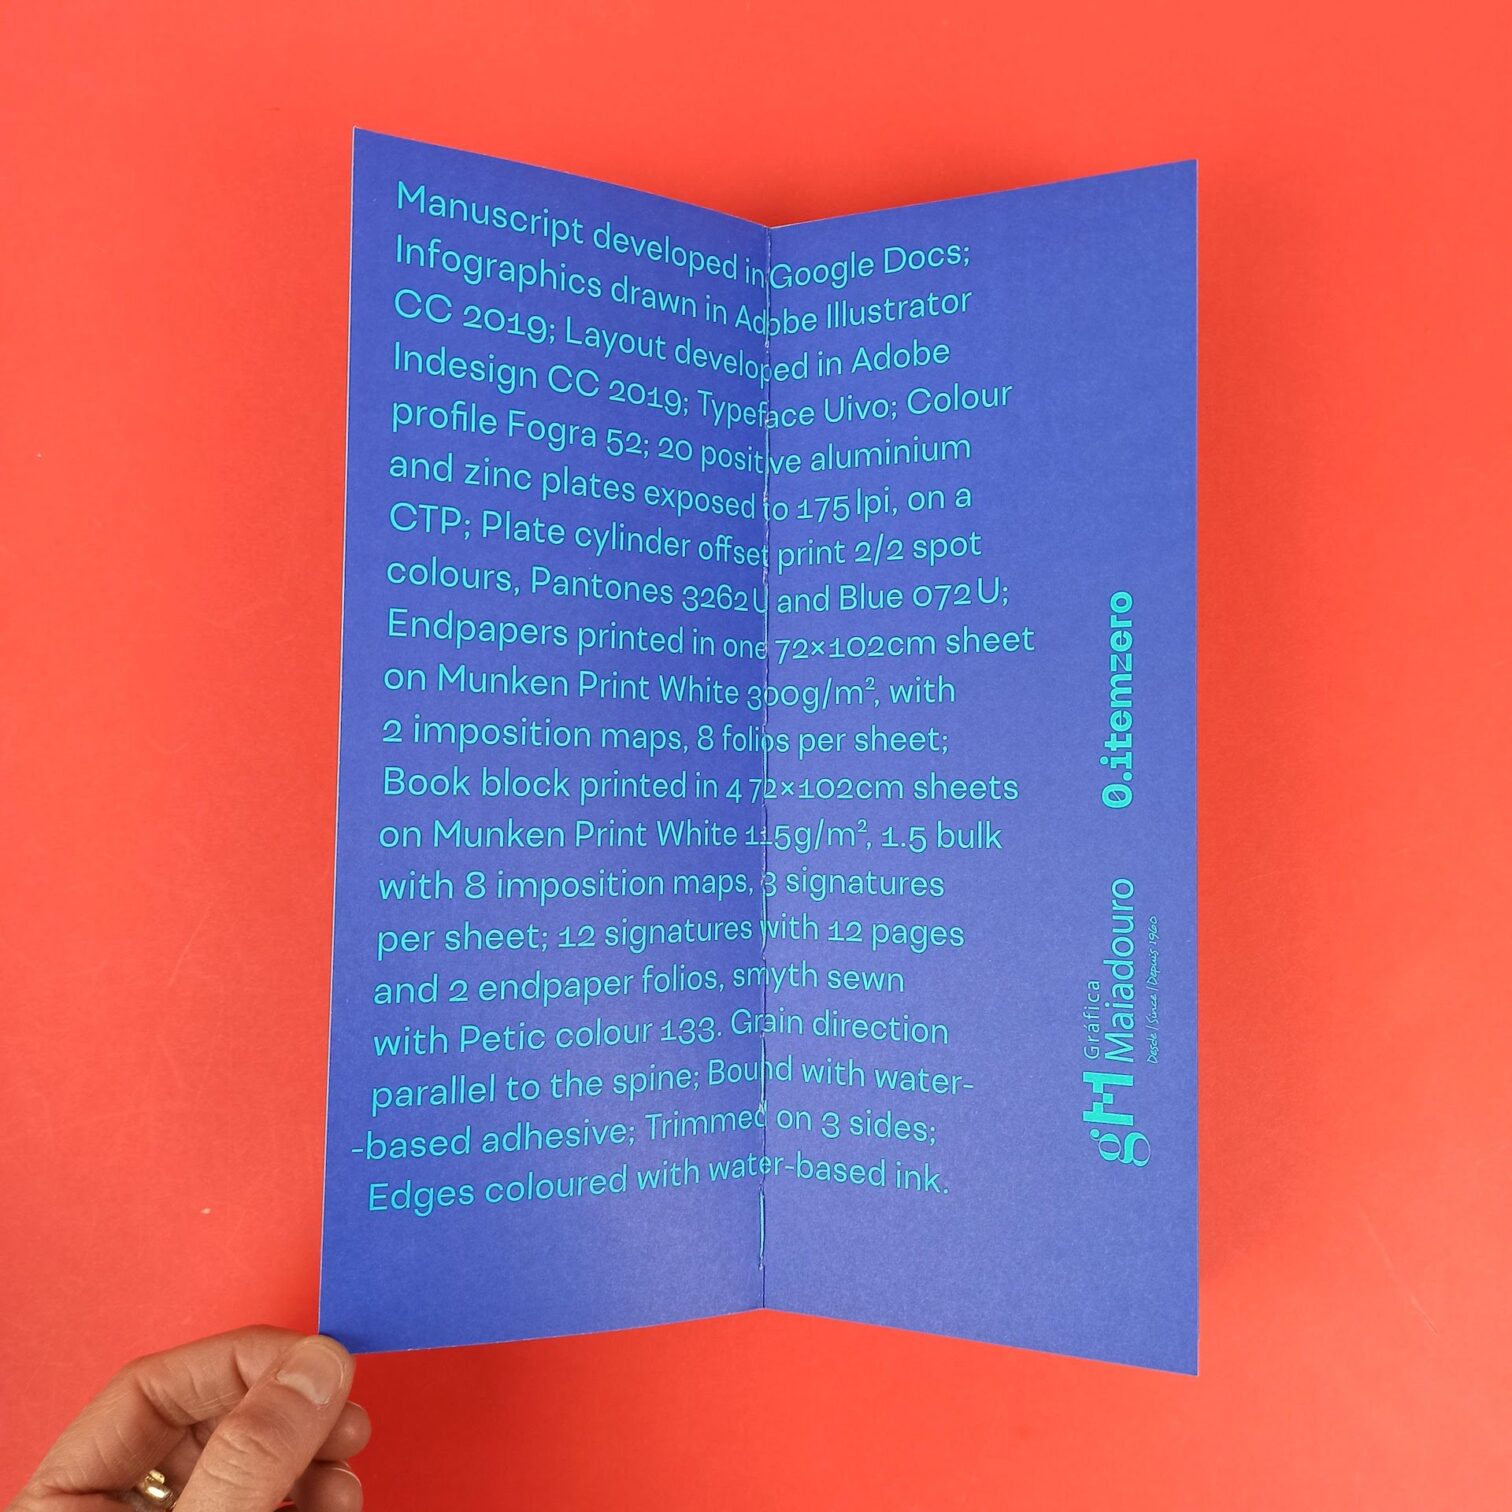 Manuscript developed in Google Docs;
Infographics drawn in Adobe Illustrator
CC 2019; Layout developed in Adobe
Indesign CC 2019; Typeface Uivo; Colour
profile Fogra 52; 20 positive aluminium
and zinc plates exposed to 175 lpi, on a
CTP; Plate cylinder offset print 2/2 spot
colours, Pantones 3262 U and Blue 072 U;
Endpapers printed in one 72×102cm sheet
on Munken Print White 300g/m², with
2 imposition maps, 8 folios per sheet;
Book block printed in 4 72×102cm sheets
on Munken Print White 115g/m², 1.5 bulk
with 8 imposition maps, 3 signatures
per sheet; 12 signatures with 12 pages
and 2 endpaper folios, smyth sewn
with Petic colour 133. Grain direction
parallel to the spine; Bound with water-
-based adhesive; Trimmed on 3 sides;
Edges coloured with water-based ink.
gM
Gráfica
Maiadouro
Desde | Since | Depuis 1960
0.itemzero